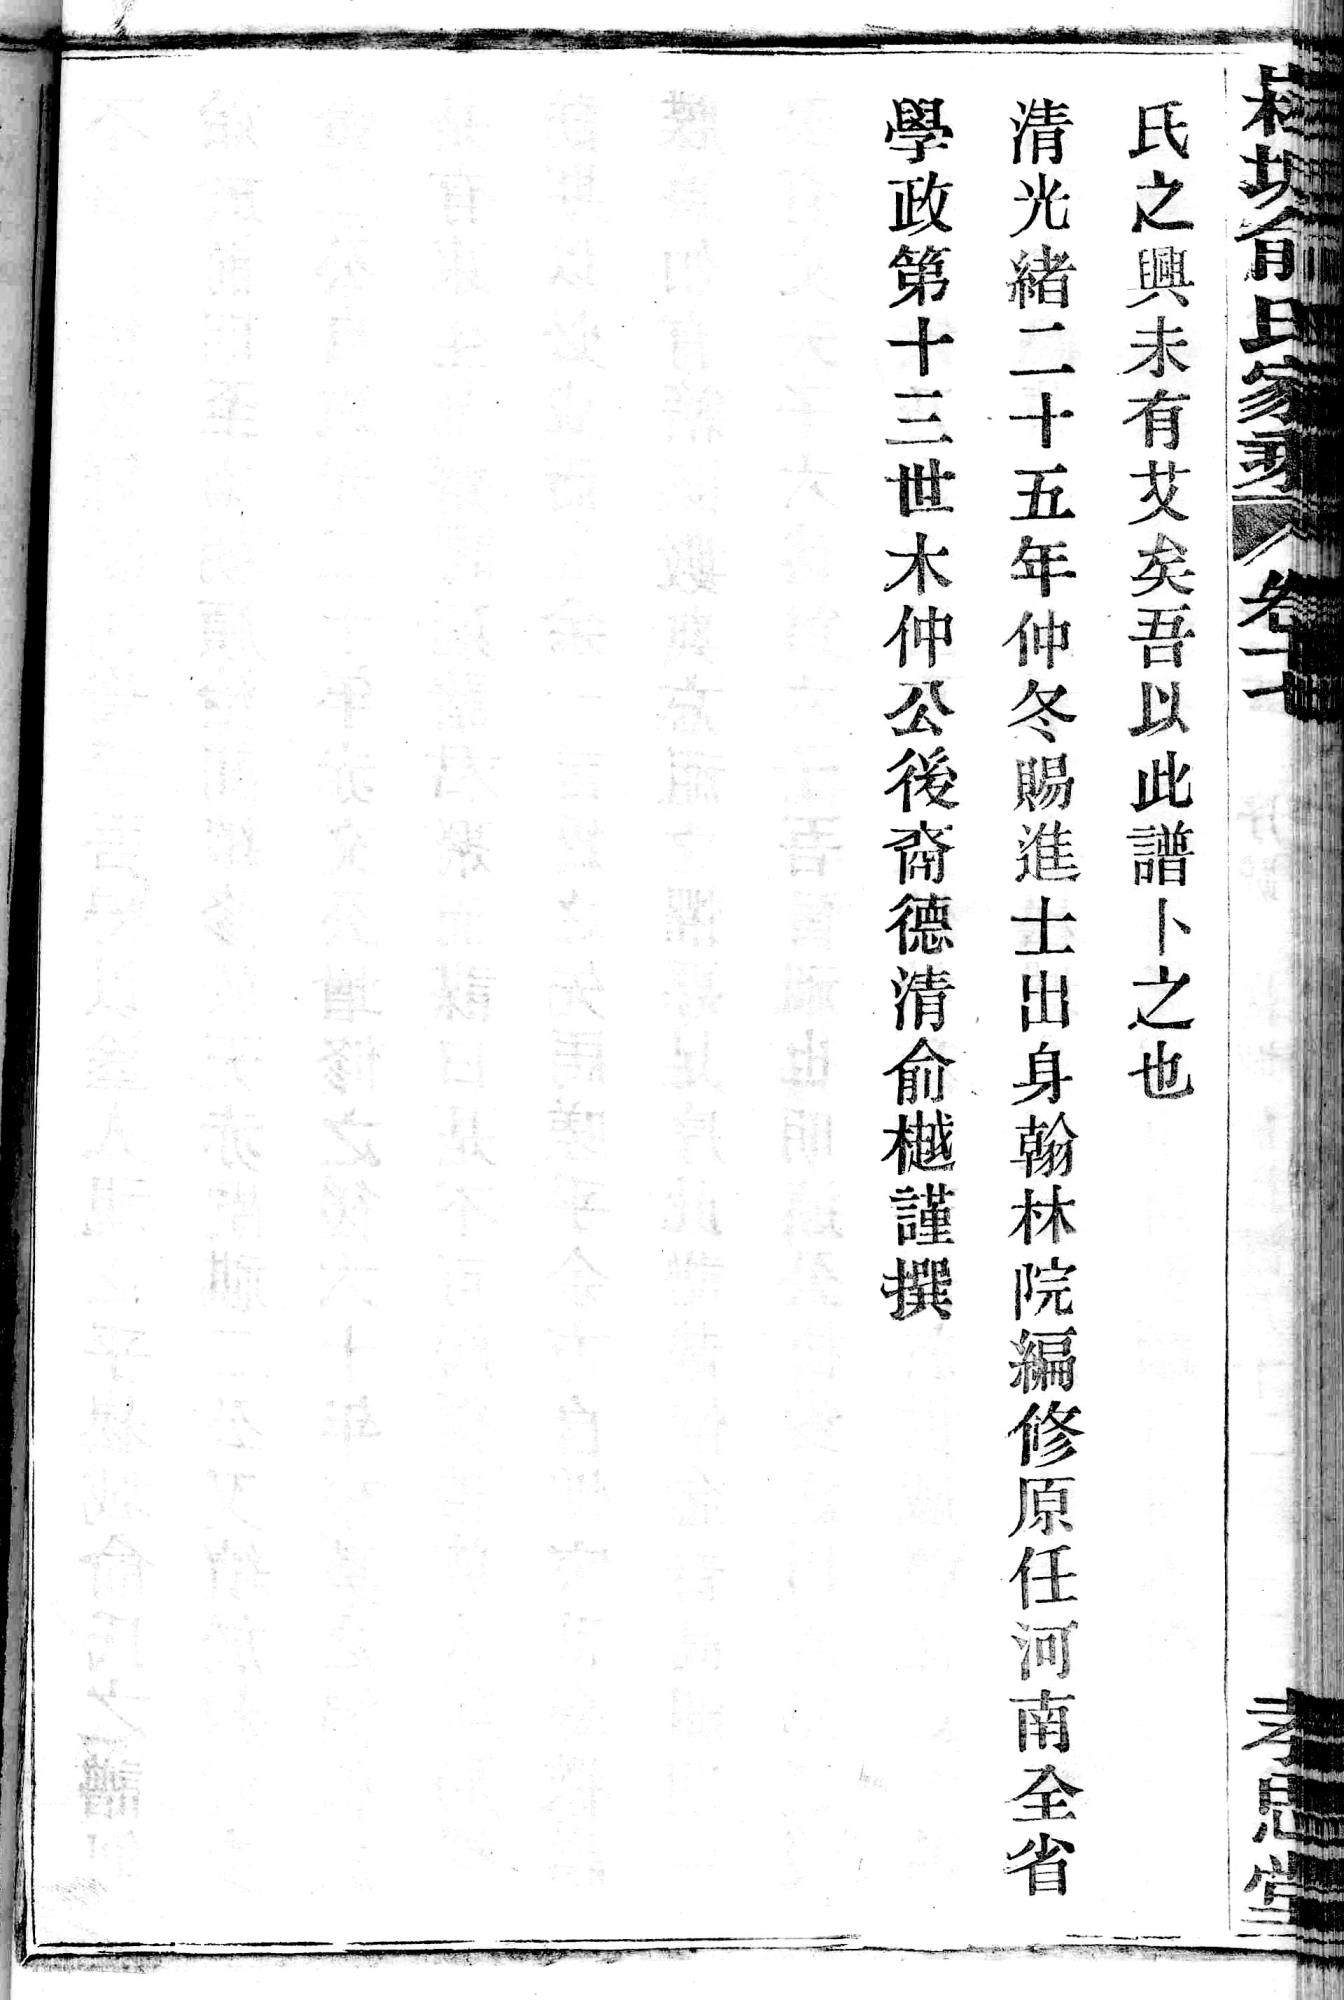 俞氏家乘 卷十七 孝思堂
氏之興未有艾矣吾以此譜卜之也
清光緒二十五年仲冬賜進士出身翰林院編修原任河南全省
學政第十三世木仲公後裔德清俞樾謹撰